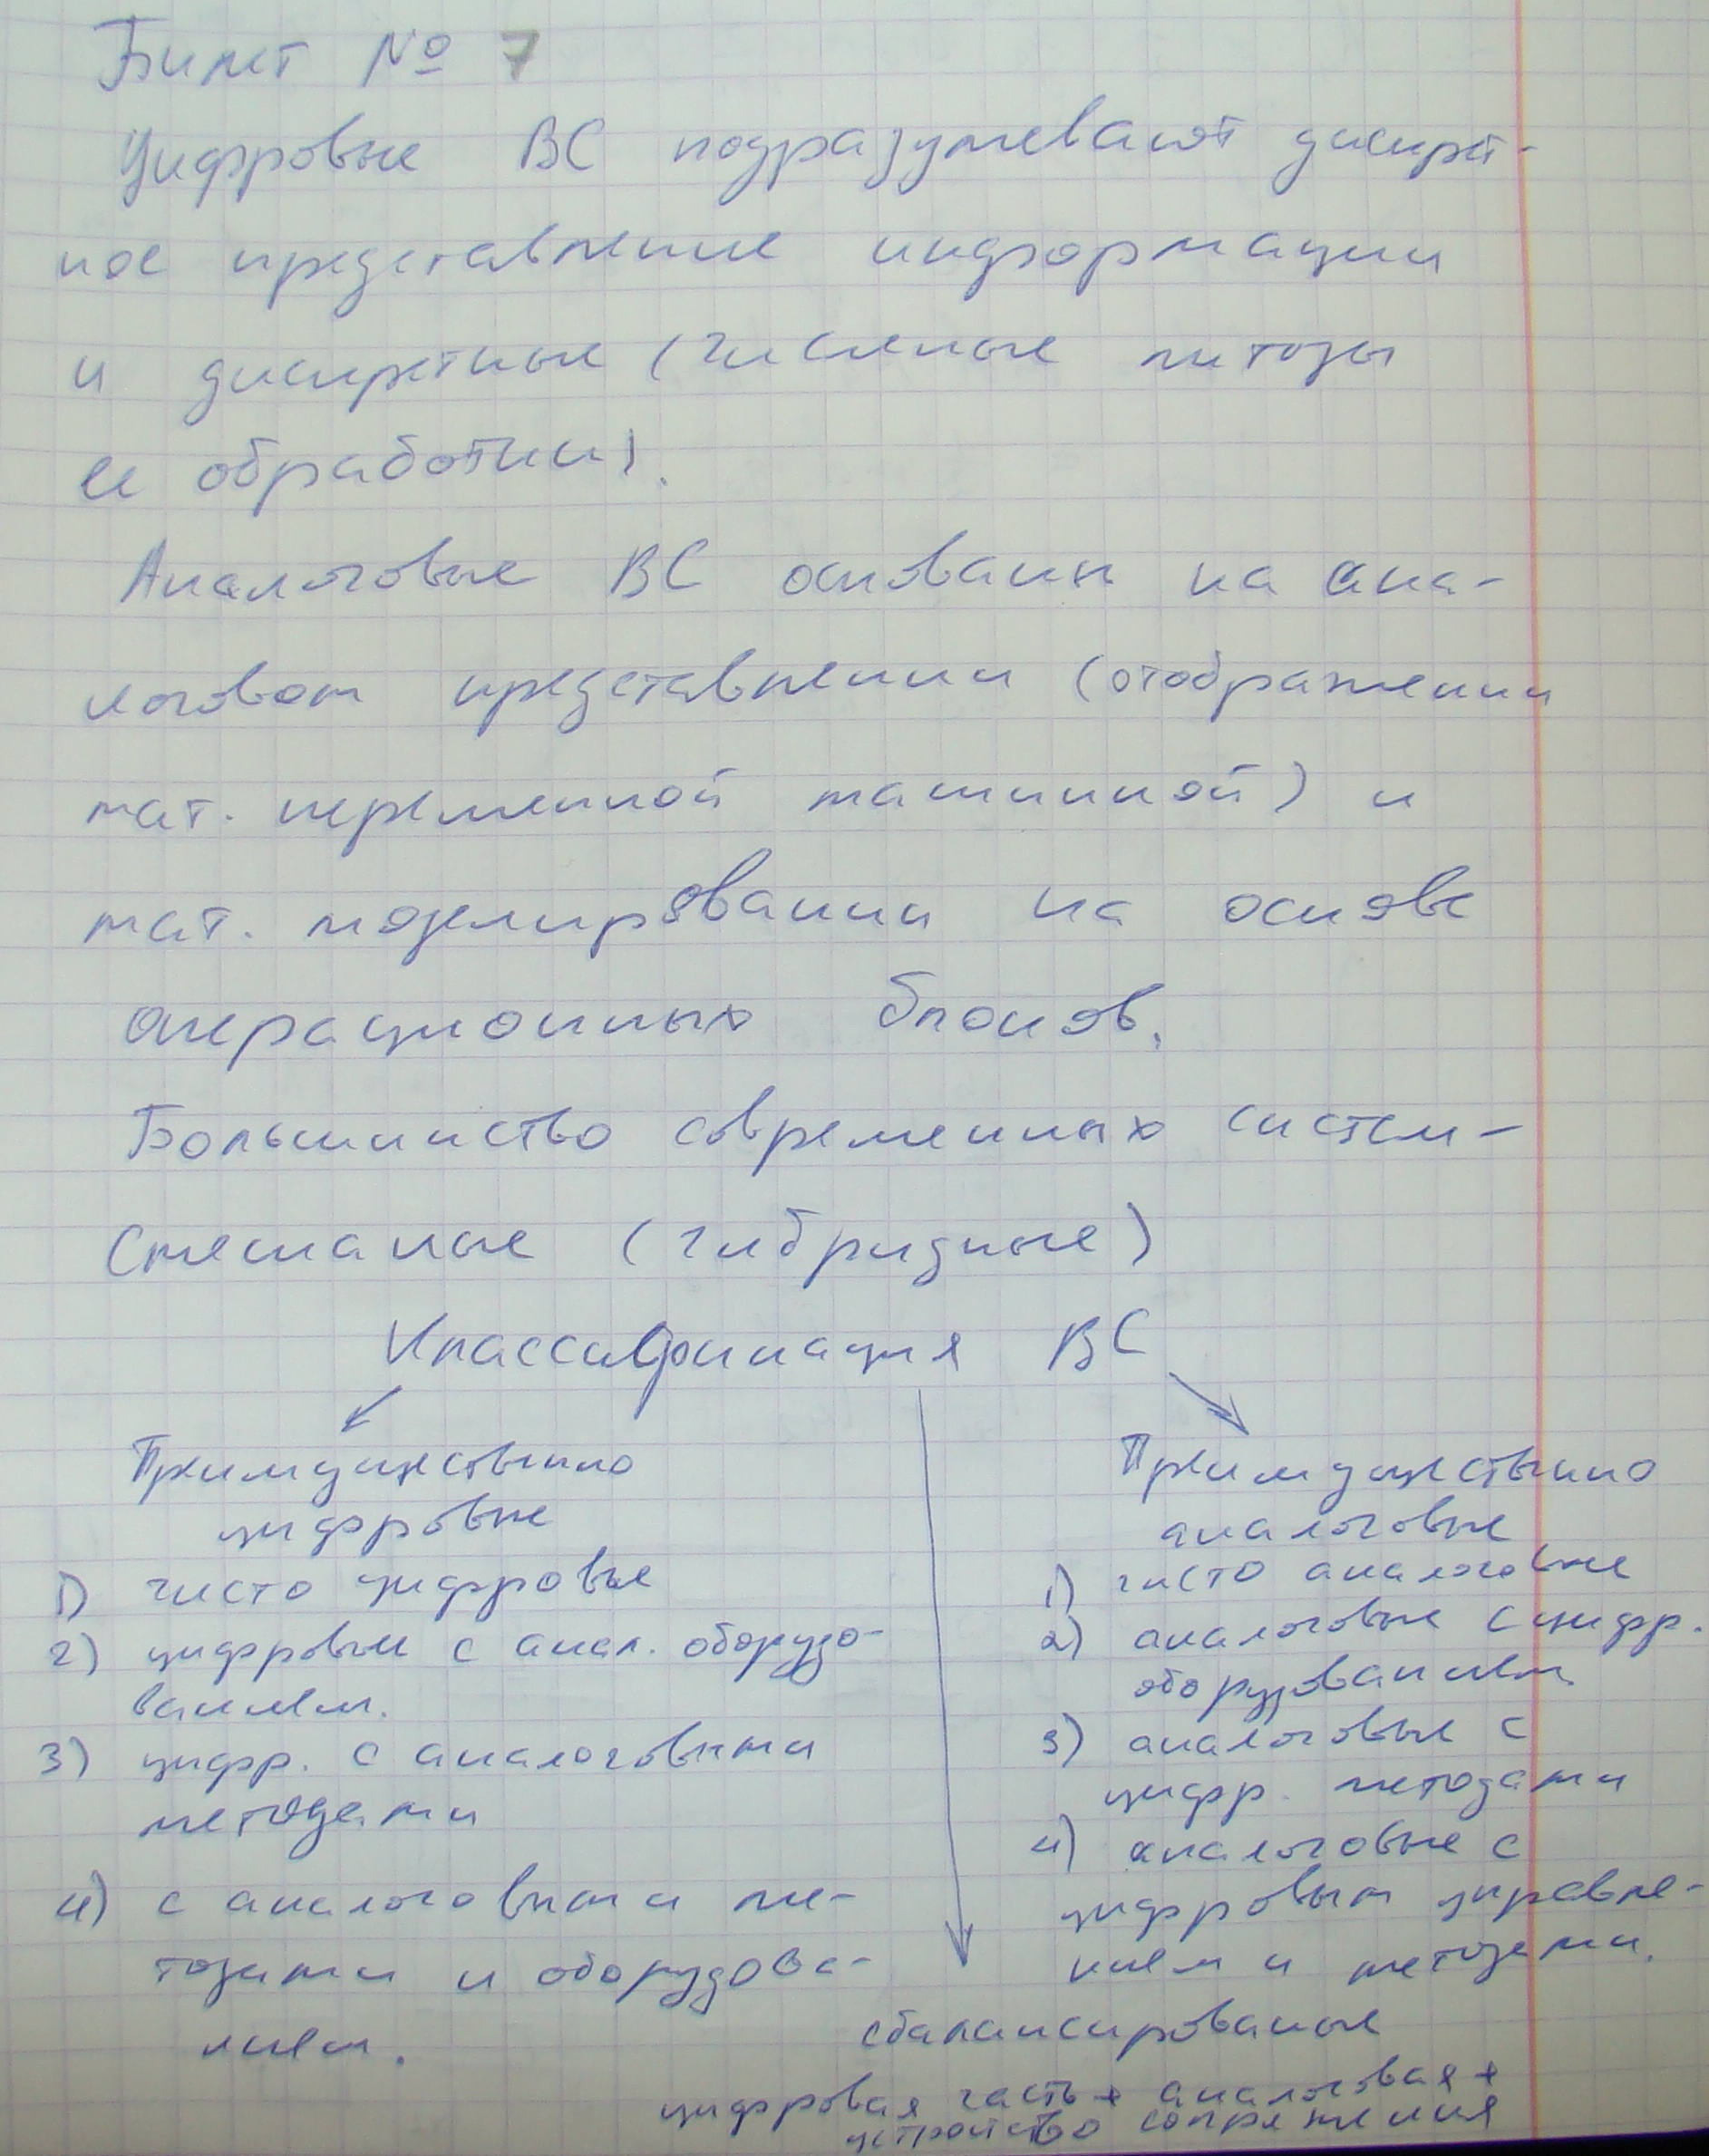 Билет № 7
Цифровые ВС подразумевают дискрет-
ное представление информации
и дискретные (численые методы
ее обработки).
Аналоговые ВС основаны на ана-
логовом представлении (отображении
мат. переменной машинной) и
мат. моделировании на основе
операционных блоков.
Большинство современных систем -
Смешаные (гибридные)
Классификация ВС
Преимущественно
цифровые
1) чисто цифровые
2) цифровые с анал. оборудо-
ванием.
3) цифр. с аналоговыми
методами
4) с аналоговыми ме-
тодами и оборудова-
нием.
Преимущественно
аналоговые
1) чисто аналоговые
2) аналоговые с цифр.
оборудованием
3) аналоговые с
цифр. методами
4) аналоговые с
цифровым управле-
нием и методами.
сбалансированые
цифровая часть + аналоговая +
устройство сопряжения